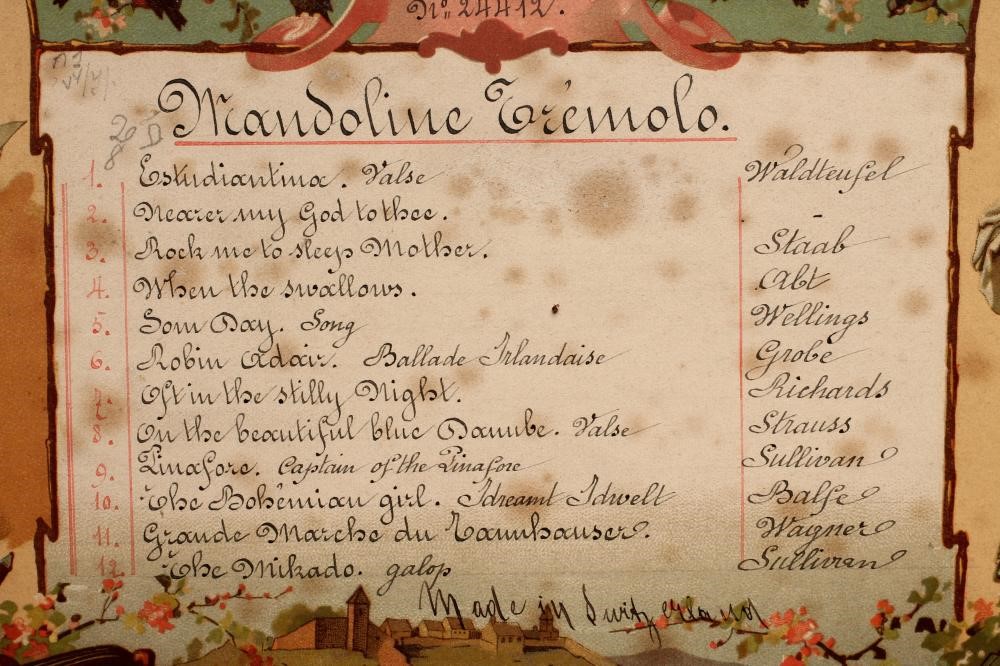 No. 24412.
Mandoline Trémolo.
1. Estudiantina. Valse Waldteufel
2. Nearer my God to thee. -
3. Rock me to sleep Mother. Staab
4. When the swallows. Abt
5. Som Day. Song Wellings
6. Robin Adair. Ballade Irlandaise Grobe
7. Oft in the stilly Night. Richards
8. On the beautiful blue Danube. Valse Strauss
9. Pinafore. Captain of the Pinafore Sullivan
10. The Bohêmian girl. Idreamt Idwelt Balfe
11. Grande Marche du Tannhauser. Wagner
12. The Mikado. galop Sullivan
Made in Switzerland